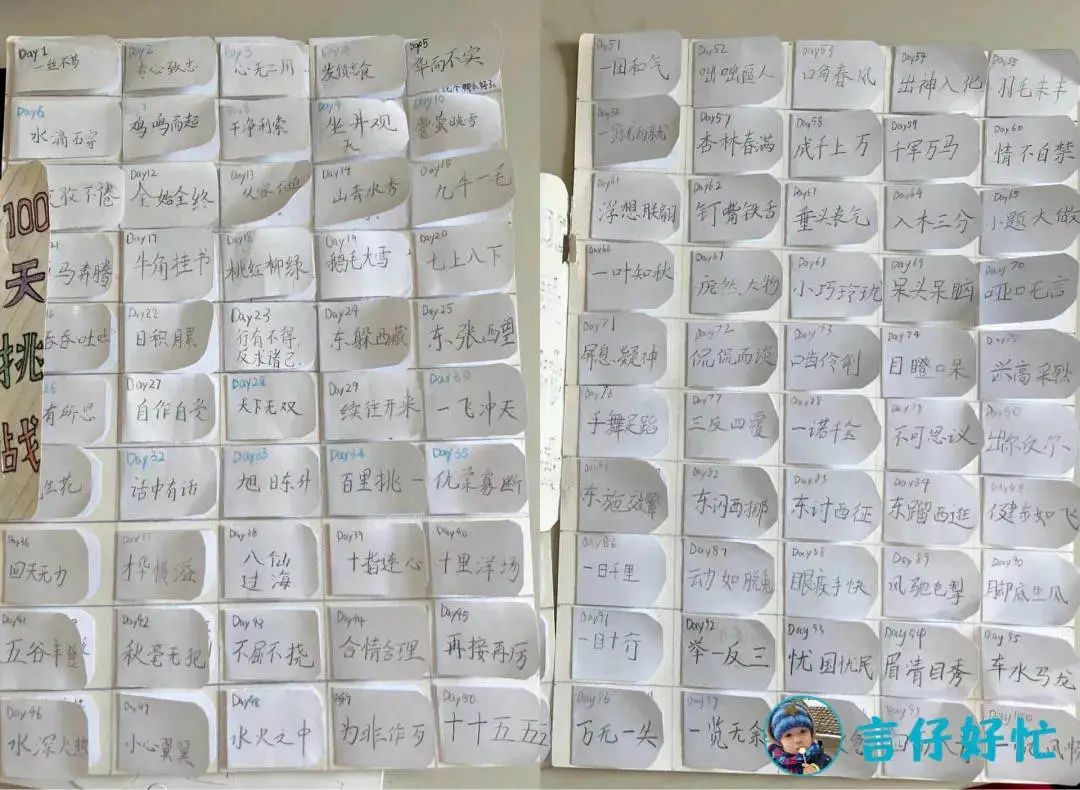 100
天
挑
战
Day1
一丝不苟
Day2
专心致志
Day3
心无二用
发愤忘食
Day5
华而不实
Day6
水滴石穿
鸡鸣而起
干净利索
Day9
坐井观
天
Day10
囊萤映雪
孜不倦
Day12
全始全终
Day13
Day14
山青水秀
Day15
九牛一毛
马奔腾
Day17
牛角挂书
Day18
桃红柳绿
Day19
鹅毛大雪
Day20
七上八下
吞吞吐吐
Day22
日积月累
Day23
行有不得,
反求诸己
Day24
东躲西藏
Day25
东张西望
有所思
Day27
自作自受
Day28
天下无双
Day29
继往开来
Day30
一飞冲天
生花
Day32
话中有话
Day33
旭日东升
Day34
百里挑一
Day35
优柔寡断
Day36
回天无力
Day37
才华横溢
Day38
八仙
过海
Day39
十指连心
Day40
十里洋场
Day41
五谷丰登
Day42
秋毫无犯
Day43
不屈不挠
Day44
合情合理
Day45
再接再厉
Day46
水深火热
Day47
小心翼翼
Day48
水火之中
为非作歹
Day50
十十五五
Day51
一团和气
Day52
咄咄逼人
Day53
口角春风
Day54
出神入化
羽毛未丰
Day57
杏林春满
Day58
成千上万
Day59
千军万马
Day60
情不自禁
Day61
浮想联翩
Day62
钉嘴铁舌
Day63
垂头丧气
Day64
入木三分
小题大做
Day66
一叶知秋
Day67
庞然大物
Day68
小巧玲珑
Day69
呆头呆脑
Day70
哑口无言
Day71
屏息凝神
Day72
侃侃而谈
Day73
口齿伶俐
Day74
目瞪口呆
兴高采烈
Day76
手舞足蹈
Day77
三反四覆
Day78
一诺千金
Day79
不可思议
Day80
出尔反尔
东施效颦
Day82
东闪西挪
Day83
东讨西征
Day84
东蹓西逛
健步如飞
Day86
一日千里
Day87
动如脱兔
Day88
眼疾手快
Day89
风驰电掣
Day90
脚底生风
Day91
一目十行
Day92
举一反三
Day93
忧国忧民
Day94
眉清目秀
Day95
车水马龙
Day96
万无一失
Day97
一览无余
言仔好忙